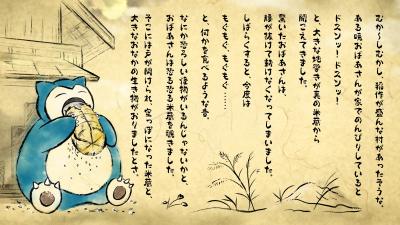 むか～しむかし、稲作が盛んな村があったそうな。
ある晩おばあさんが家でのんびりしていると
ドスンッ！ドスンッ！
と、大きな地響きが裏の米蔵から
聞こえてきました。
驚いたおばあさんは、
腰が抜けて動けなくなってしまいました。
しばらくすると、今度は
もぐもぐ、もぐもぐ……
と、何かを食べるような音。
なにか恐ろしい怪物がいるんじゃないかと、
おばあさんは恐る恐る米蔵を覗きました。
そこには戸が開けられ、空っぽになった米蔵と、
大きなおなかの生き物がおりましたとさ。